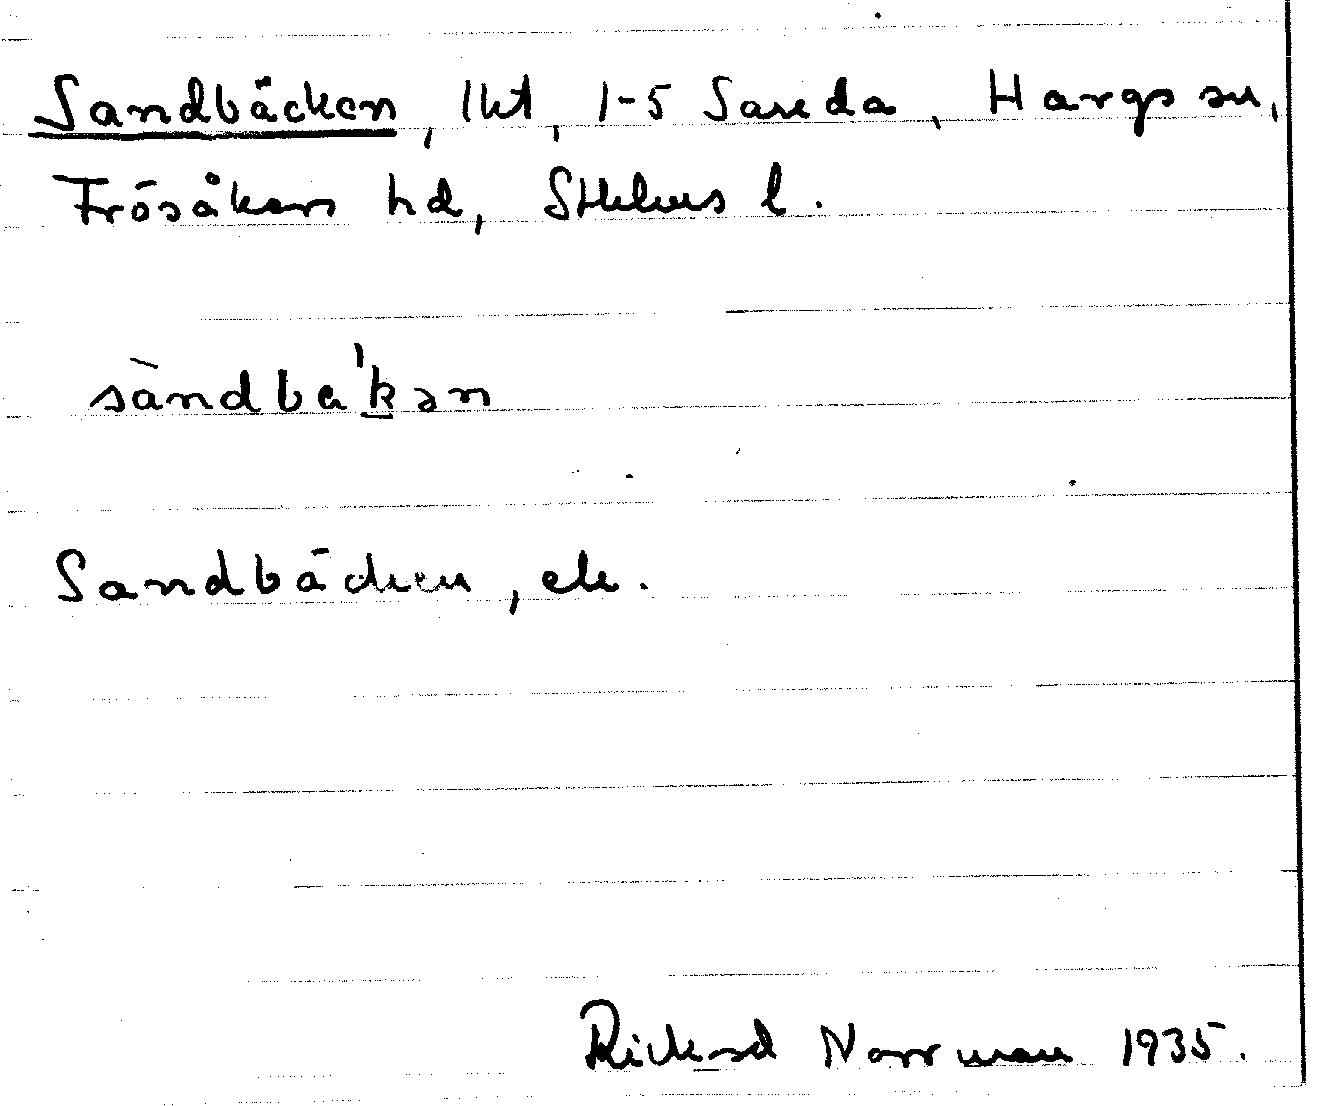 Sandbäcken, lht, 1-5 Sanda, Hargs sn,
Frösåkers hd, Sthlms l.
sàndbä'kən
Sandbäcken, ek.
Rickard Norrman 1935.